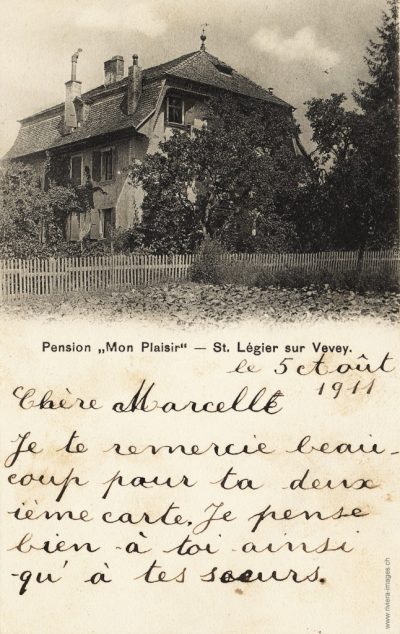 Pension „Mon Plaisir“ — St. Légier sur Vevey.
le 5 Août
1911
Chère Marcelle
Je te remercie beau-
coup pour ta deux
ième carte. Je pense
bien à toi ainsi
qu'à tes sœurs.
www.riviera-images.ch